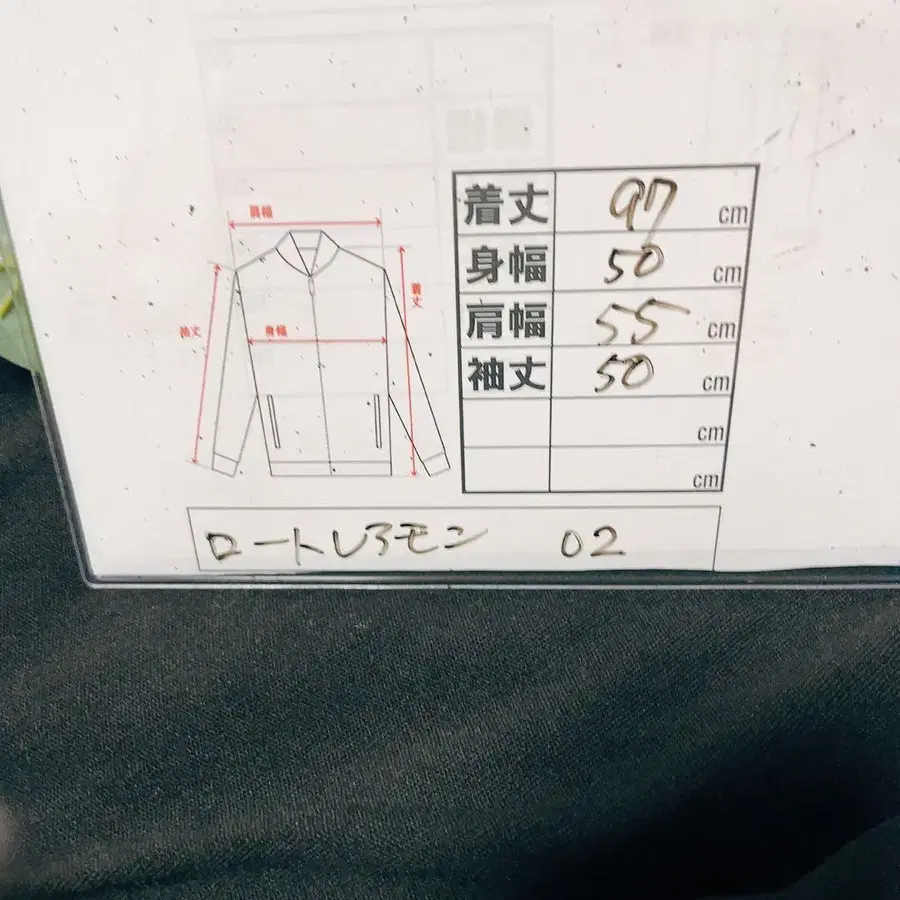 肩幅
着丈
袖丈
身幅
着丈 97 cm
身幅 50 cm
肩幅 55 cm
袖丈 50 cm
cm
cm
ロートレアモン 02